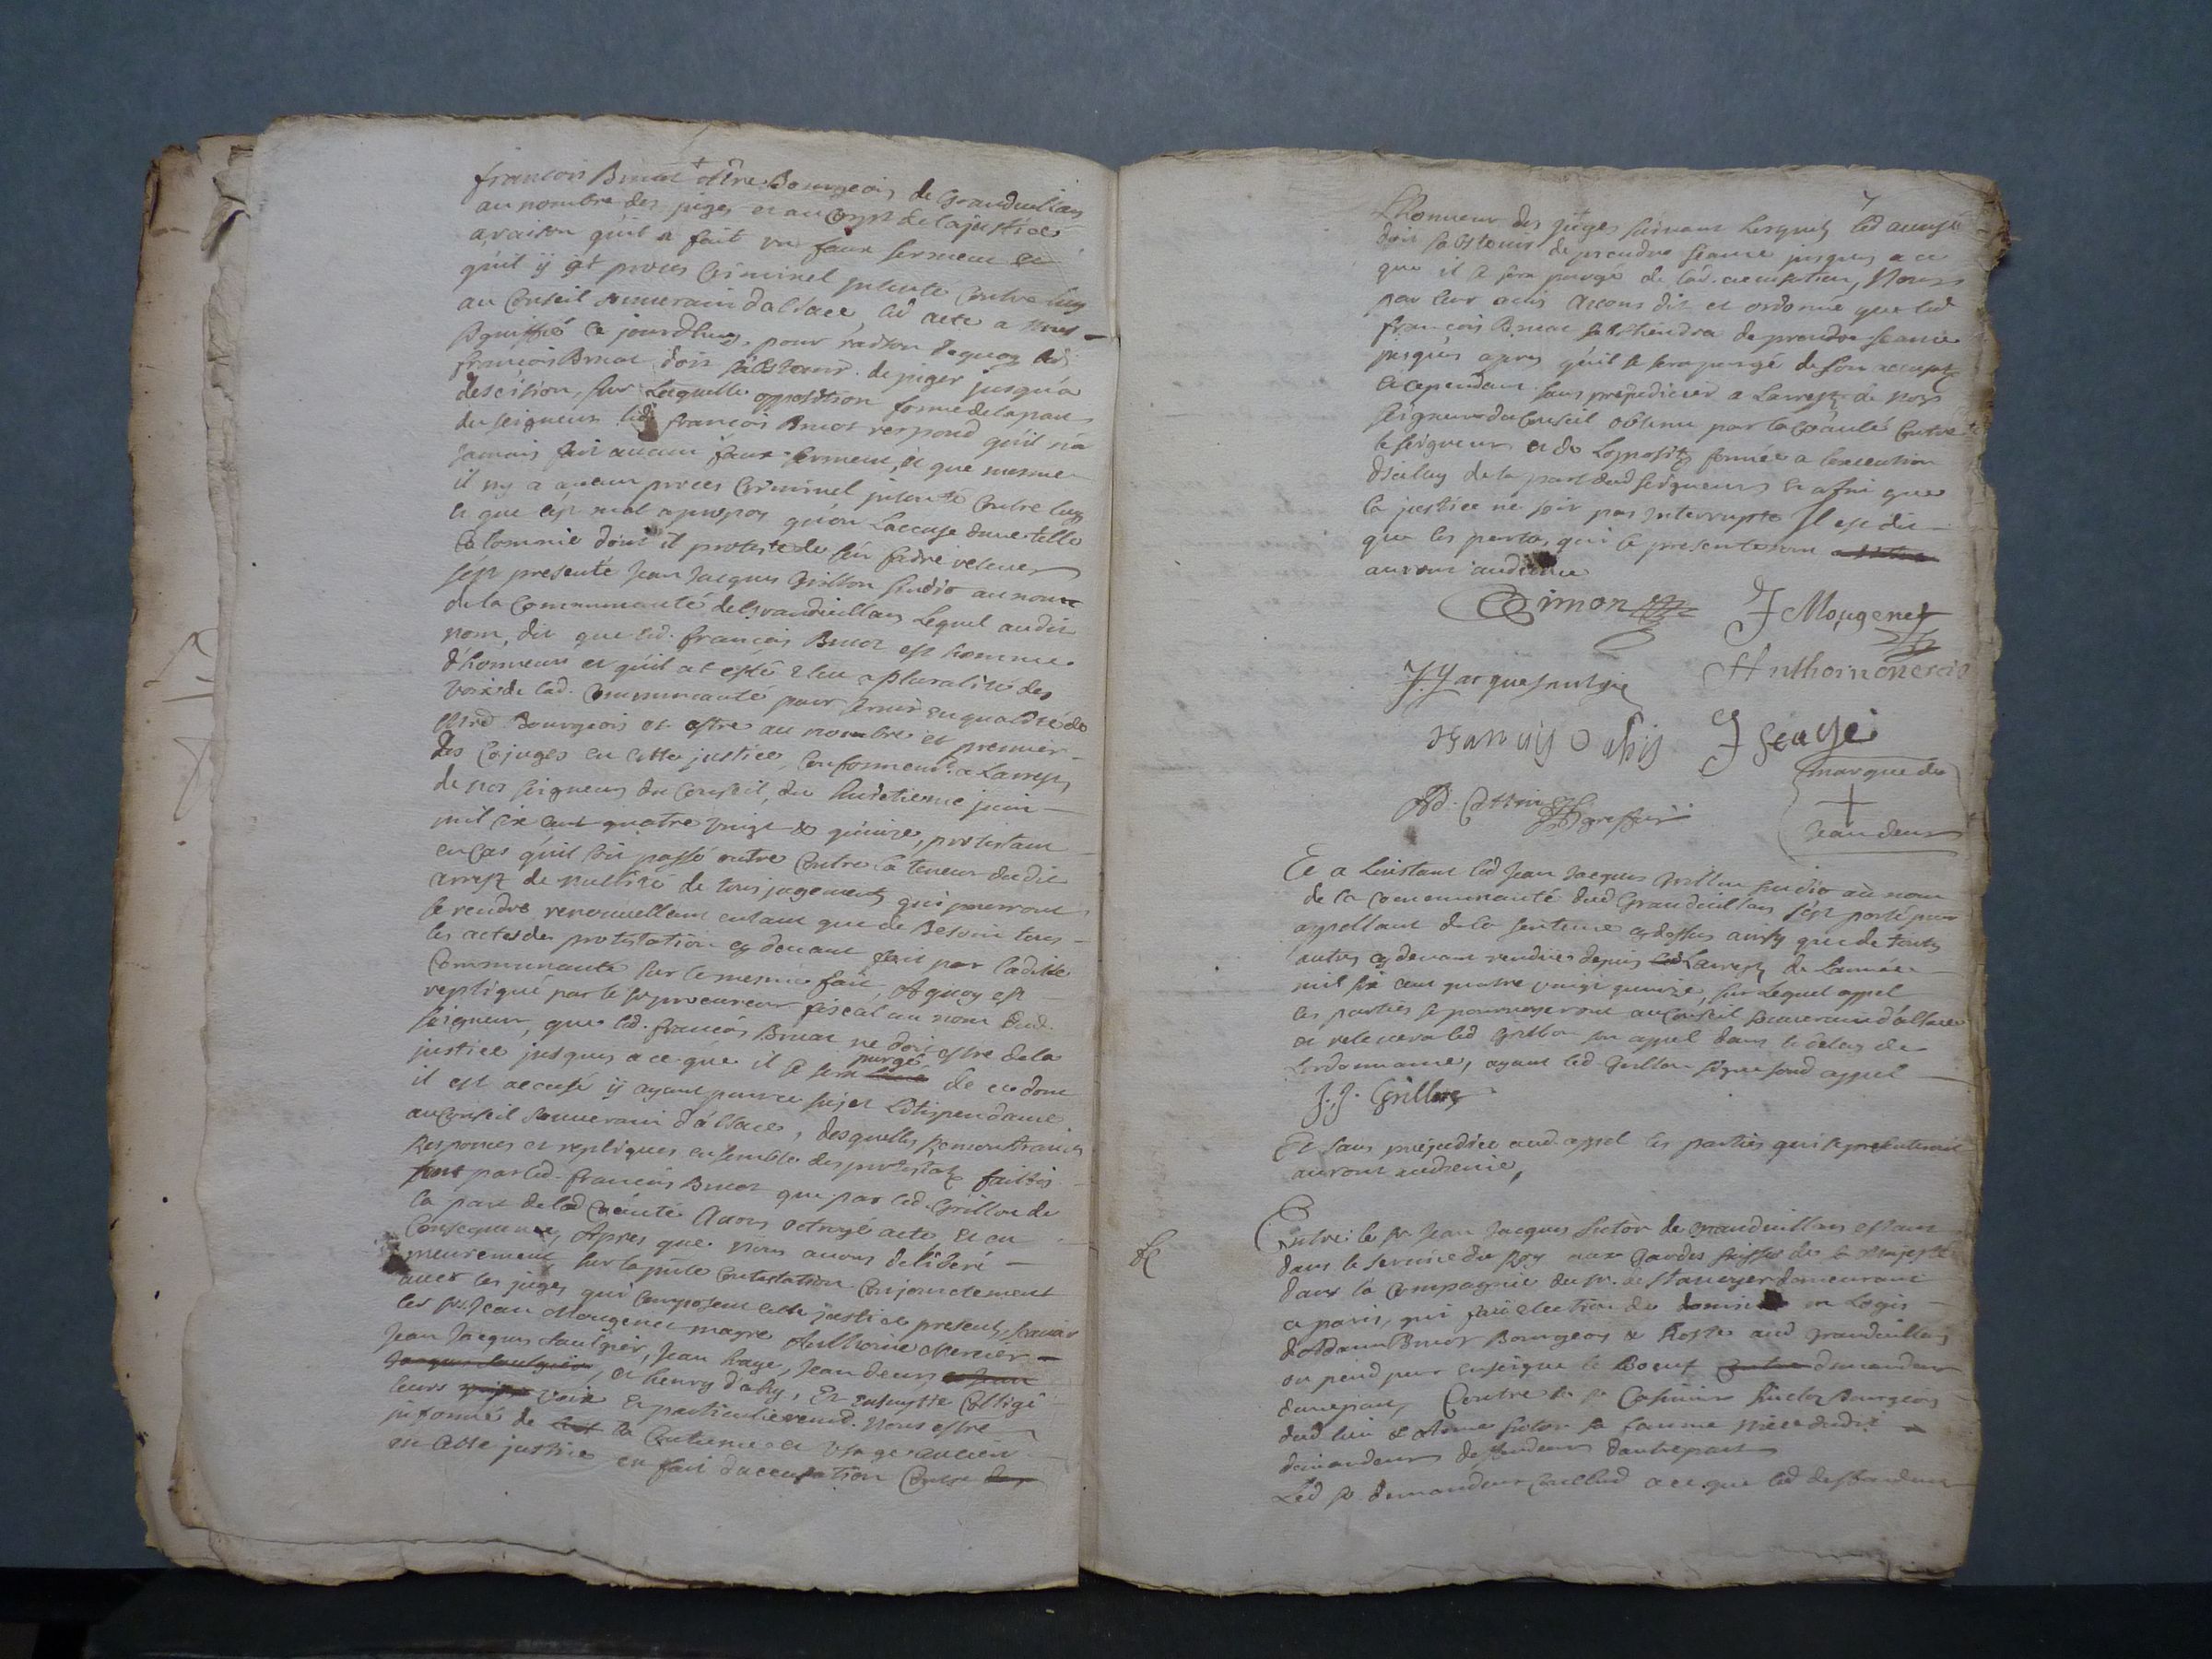 francois Bruat + estre Bourgeois de Grandvillars
au nombre des juges et au Corps de la justice
a raison qu'il a fait un faux serment et
qu'il ij at proces Criminel intenté contre luy
au Conseil souverain d'alsace, led acte a nous
signiffié ce jourdhuy, pour raison dequoy led
francois Bruat doit s'abstenir de juger jusqu'a
descision, sur Laquelle opposition formé de la part
du seigneur led francois Bruat respond qu'il n'a
jamais fait aucun faux serment, et que mesme
il ny a aucun proces Criminel intenté contre luy
et que c'est mal apropos qu'on L'accuse d'une telle
Calomnie dont il proteste de s'en faire relever
s'est presenté Jean Jacques Grillon sindic au nom
de la Communauté de Grandvillars Lequel audit
nom, dit que led. francois Bruat est homme
d'honneur et qu'il at esté eleu a pluralité des
voix de lad. Communauté pour servir en qualité de
Bourgeois et estre au nombre et premier
des Cojuges en cette justice, conformemt. a L'arrest
de nos seigneurs du Conseil, du huictieme juin
mil six cent quatre vingt & quinze, protestant
en cas qu'il soit passé outre contre la teneur dudit
arrest de nullité de tous jugements qui pourront
se rendre renouvellant entant que de Besoin tous
les actes des protestation cy devant fait par laditte
Communauté sur le mesme fait, A quoy est
repliqué par le sr procureur fiscal au nom dud.
seigneur, que led. francois Bruat ne doit estre de la
justice jusques a ce que il se sera purgé de ce dont
il est accusé ij ayant pour ce sujet Litispendance
au Conseil souverain d'alsace, desquelles Remontrances
Responces et repliques ensemble des protestatz faittes
tant par led. francois Bruat que par led. Grillon de
la part de lad Coauté Avons octroyé acte, et en
Consequence, Apres que nous avons deliberé
meurement sur la susdite contestation conjonctement
avec les juges qui composent cette justice presents, scavoir
les srs. Jean Mougenet mayre Anthoine Mercier
Jean Jacques Saulnier, Jean haye, Jean deur
et henry dahy, Et ensuitte colligé
leurs voix et particulieremt. nous estre
informé de la Coutume et usage ancien
en cette justice en fait d'accusation contre
7
L'honneur des juges suivant lesquels led accusé
doit s'abstenir de prendre seance jusques a ce
que il se sera purgé de lad. accusation, Nous
par leur avis Avons dit et ordonné que led
francois Bruat s'abstiendra de prendre seance
jusques apres qu'il se sera purgé de son accusatz
et cependant sans prejudicier a L'arrest de nos
seigneurs du Conseil obtenu par la Coauté Contre
le seigneur et de L'oppositz formée a l'execution
d'icelluy de la part dud seigneur et afin que
la justice ne soit pas interrompte Il est dit
que les parties qui se presenteront
auront audience
Simon J Mougenet
J.Jacque saulnie Anthoine mercie
Hanrij dahij J heaye
marque de
+
Jean deur
Ad. Cattin greffier
Et a l'instant led Jean Jacques Grillon sindic au nom
de la Communauté dud Grandvillars s'est porté pour
appellant de la sentence cy dessus ainsy que de toutes
autres cy devant rendues depuis L'arrest de L'année
mil six cent quatre vingt quinze, sur Lequel appel
les parties se pourvoyeront au Conseil souverain d'alsace
et relevera led Grillon son appel dans le delay de
L'ordonnance, ayant led Grillon signé sond appel
J. J. Grillon
Et sans prejudice aud. appel les parties qui se presenteront
auront audience,
Entre le sr Jean Jacques Sutor de Grandvillars estant
dans le service du Roy aux Gardes suisses de sa Majesté
dans la Compagnie du sr. de Stavayer demeurant
a paris, qui fait election de domicile en Logis
d'Adam Bruat Bourgeois & hoste aud Grandvillars
ou pend pour enseigne le Boeuf demandeur
d'une part, Contre le sr Casimir Bourgeois
dud lieu & Anne Sutor sa famme niece dudit
demandeur deffendeurs d'autre part
Led sr. demandeur Conclud a ce que led deffendeur